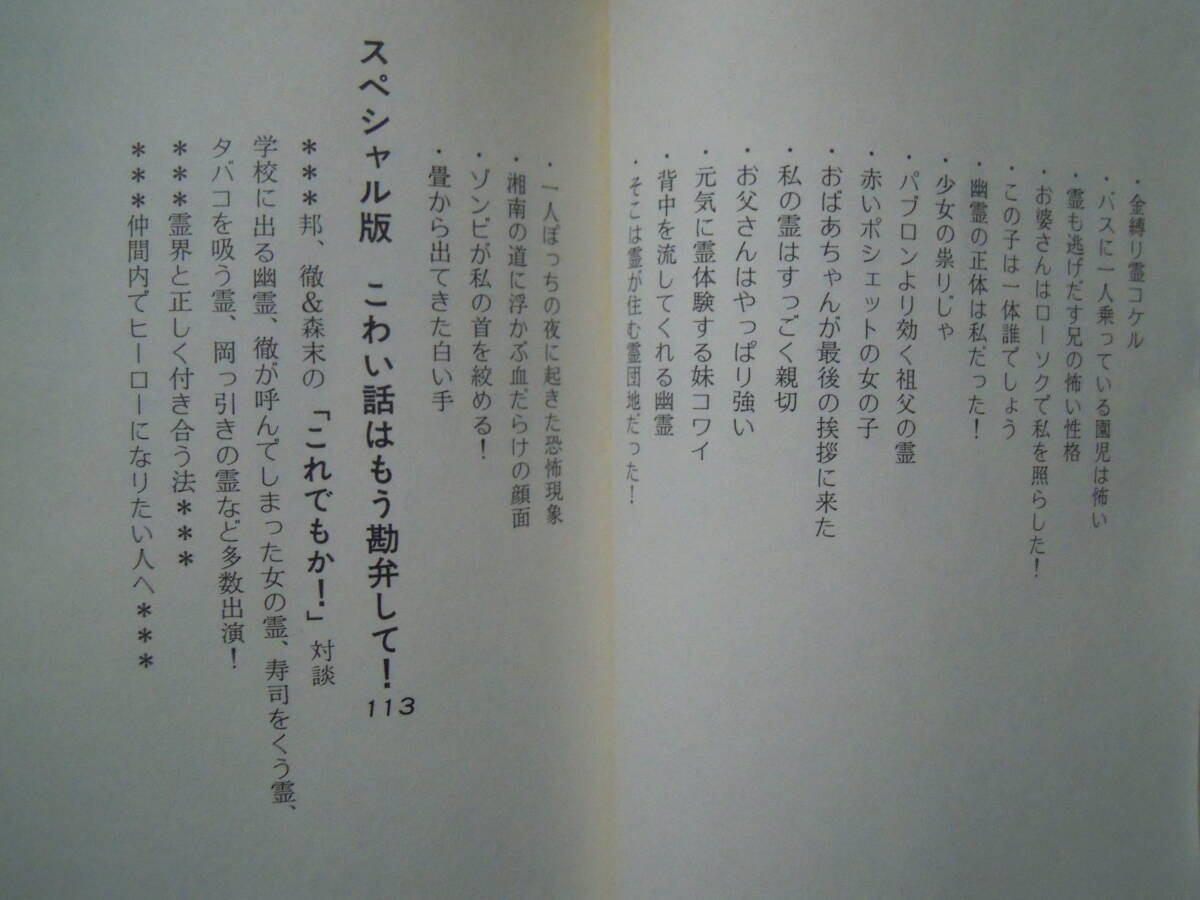 ・金縛リ霊コケル
・バスに一人乗っている園児は怖い
・霊も逃げだす兄の怖い性格
・お婆さんはローソクで私を照らした！
・この子は一体誰でしょう
・幽霊の正体は私だった！
・少女の祟りじゃ
・パブロンより効く祖父の霊
・赤いポシェットの女の子
・おばあちゃんが最後の挨拶に来た
・私の霊はすっごく親切
・お父さんはやっぱり強い
・元気に霊体験する妹コワイ
・背中を流してくれる幽霊
・そこは霊が住む霊団地だった！
・一人ぽっちの夜に起きた恐怖現象
・湘南の道に浮かぶ血だらけの顔面
・ゾンビが私の首を絞める！
・畳から出てきた白い手
スペシャル版　こわい話はもう勘弁して！ 113
＊＊＊邦、徹＆森末の「これでもか！」対談
学校に出る幽霊、徹が呼んでしまった女の霊、寿司をくう霊、
タバコを吸う霊、岡っ引きの霊など多数出演！
＊＊＊霊界と正しく付き合う法＊＊＊
＊＊＊仲間内でヒーローになりたい人へ＊＊＊